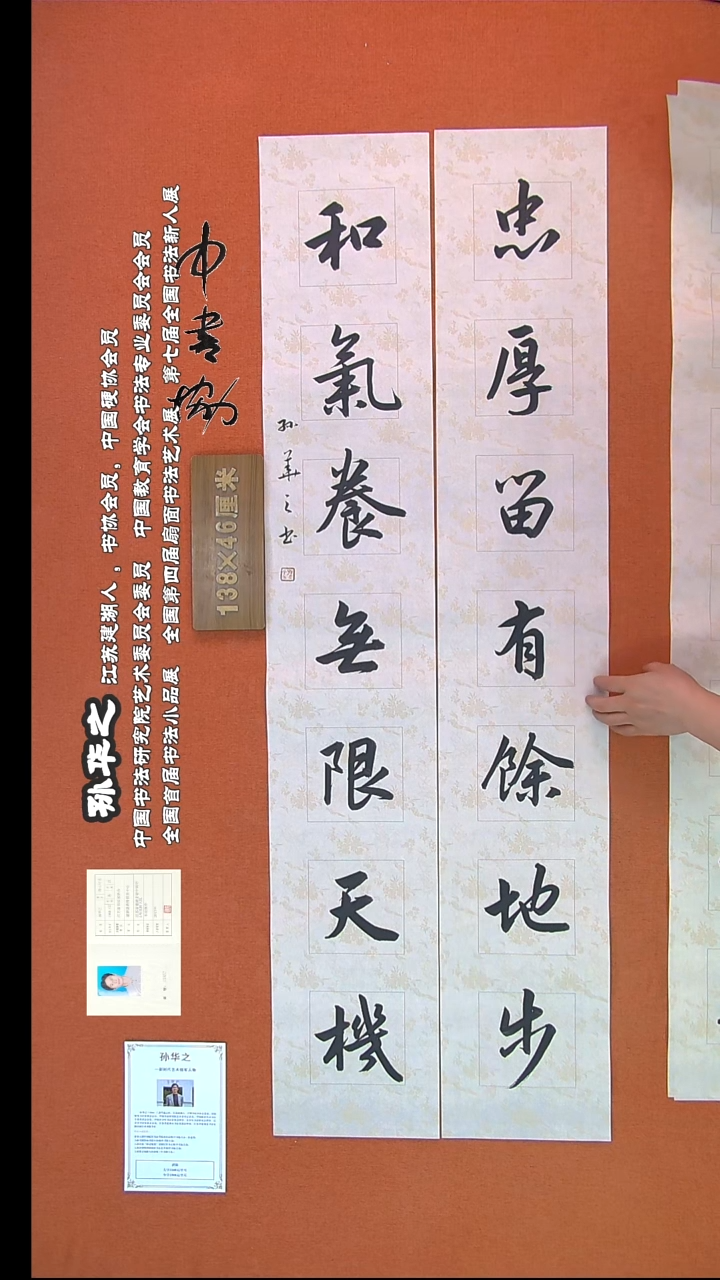 忠厚留有餘地步
和氣養無限天機
孙華之书
中书协
138×46厘米
孙华之
江苏建湖人，书协会员，中国硬协会员
中国书法研究院艺术委员会委员 中国教育学会书法专业委员会会员
全国首届书法小品展 全国第四届扇面书法艺术展 第七届全国书法新人展
孙华之